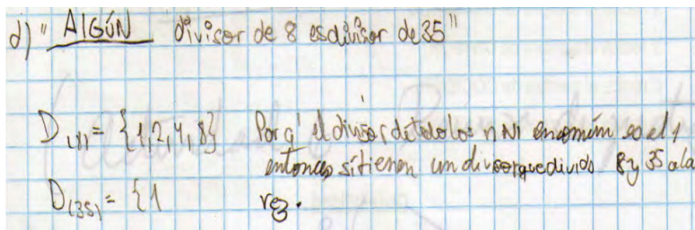 d) "ALGÚN divisor de 8 es divisor de 35"
D(8) = {1,2,4,8} Porq' el divisor de todos los nº N en común es el 1
entonces sí tienen un divisor que divida 8 y 35 a la
D(35) = {1 vez.